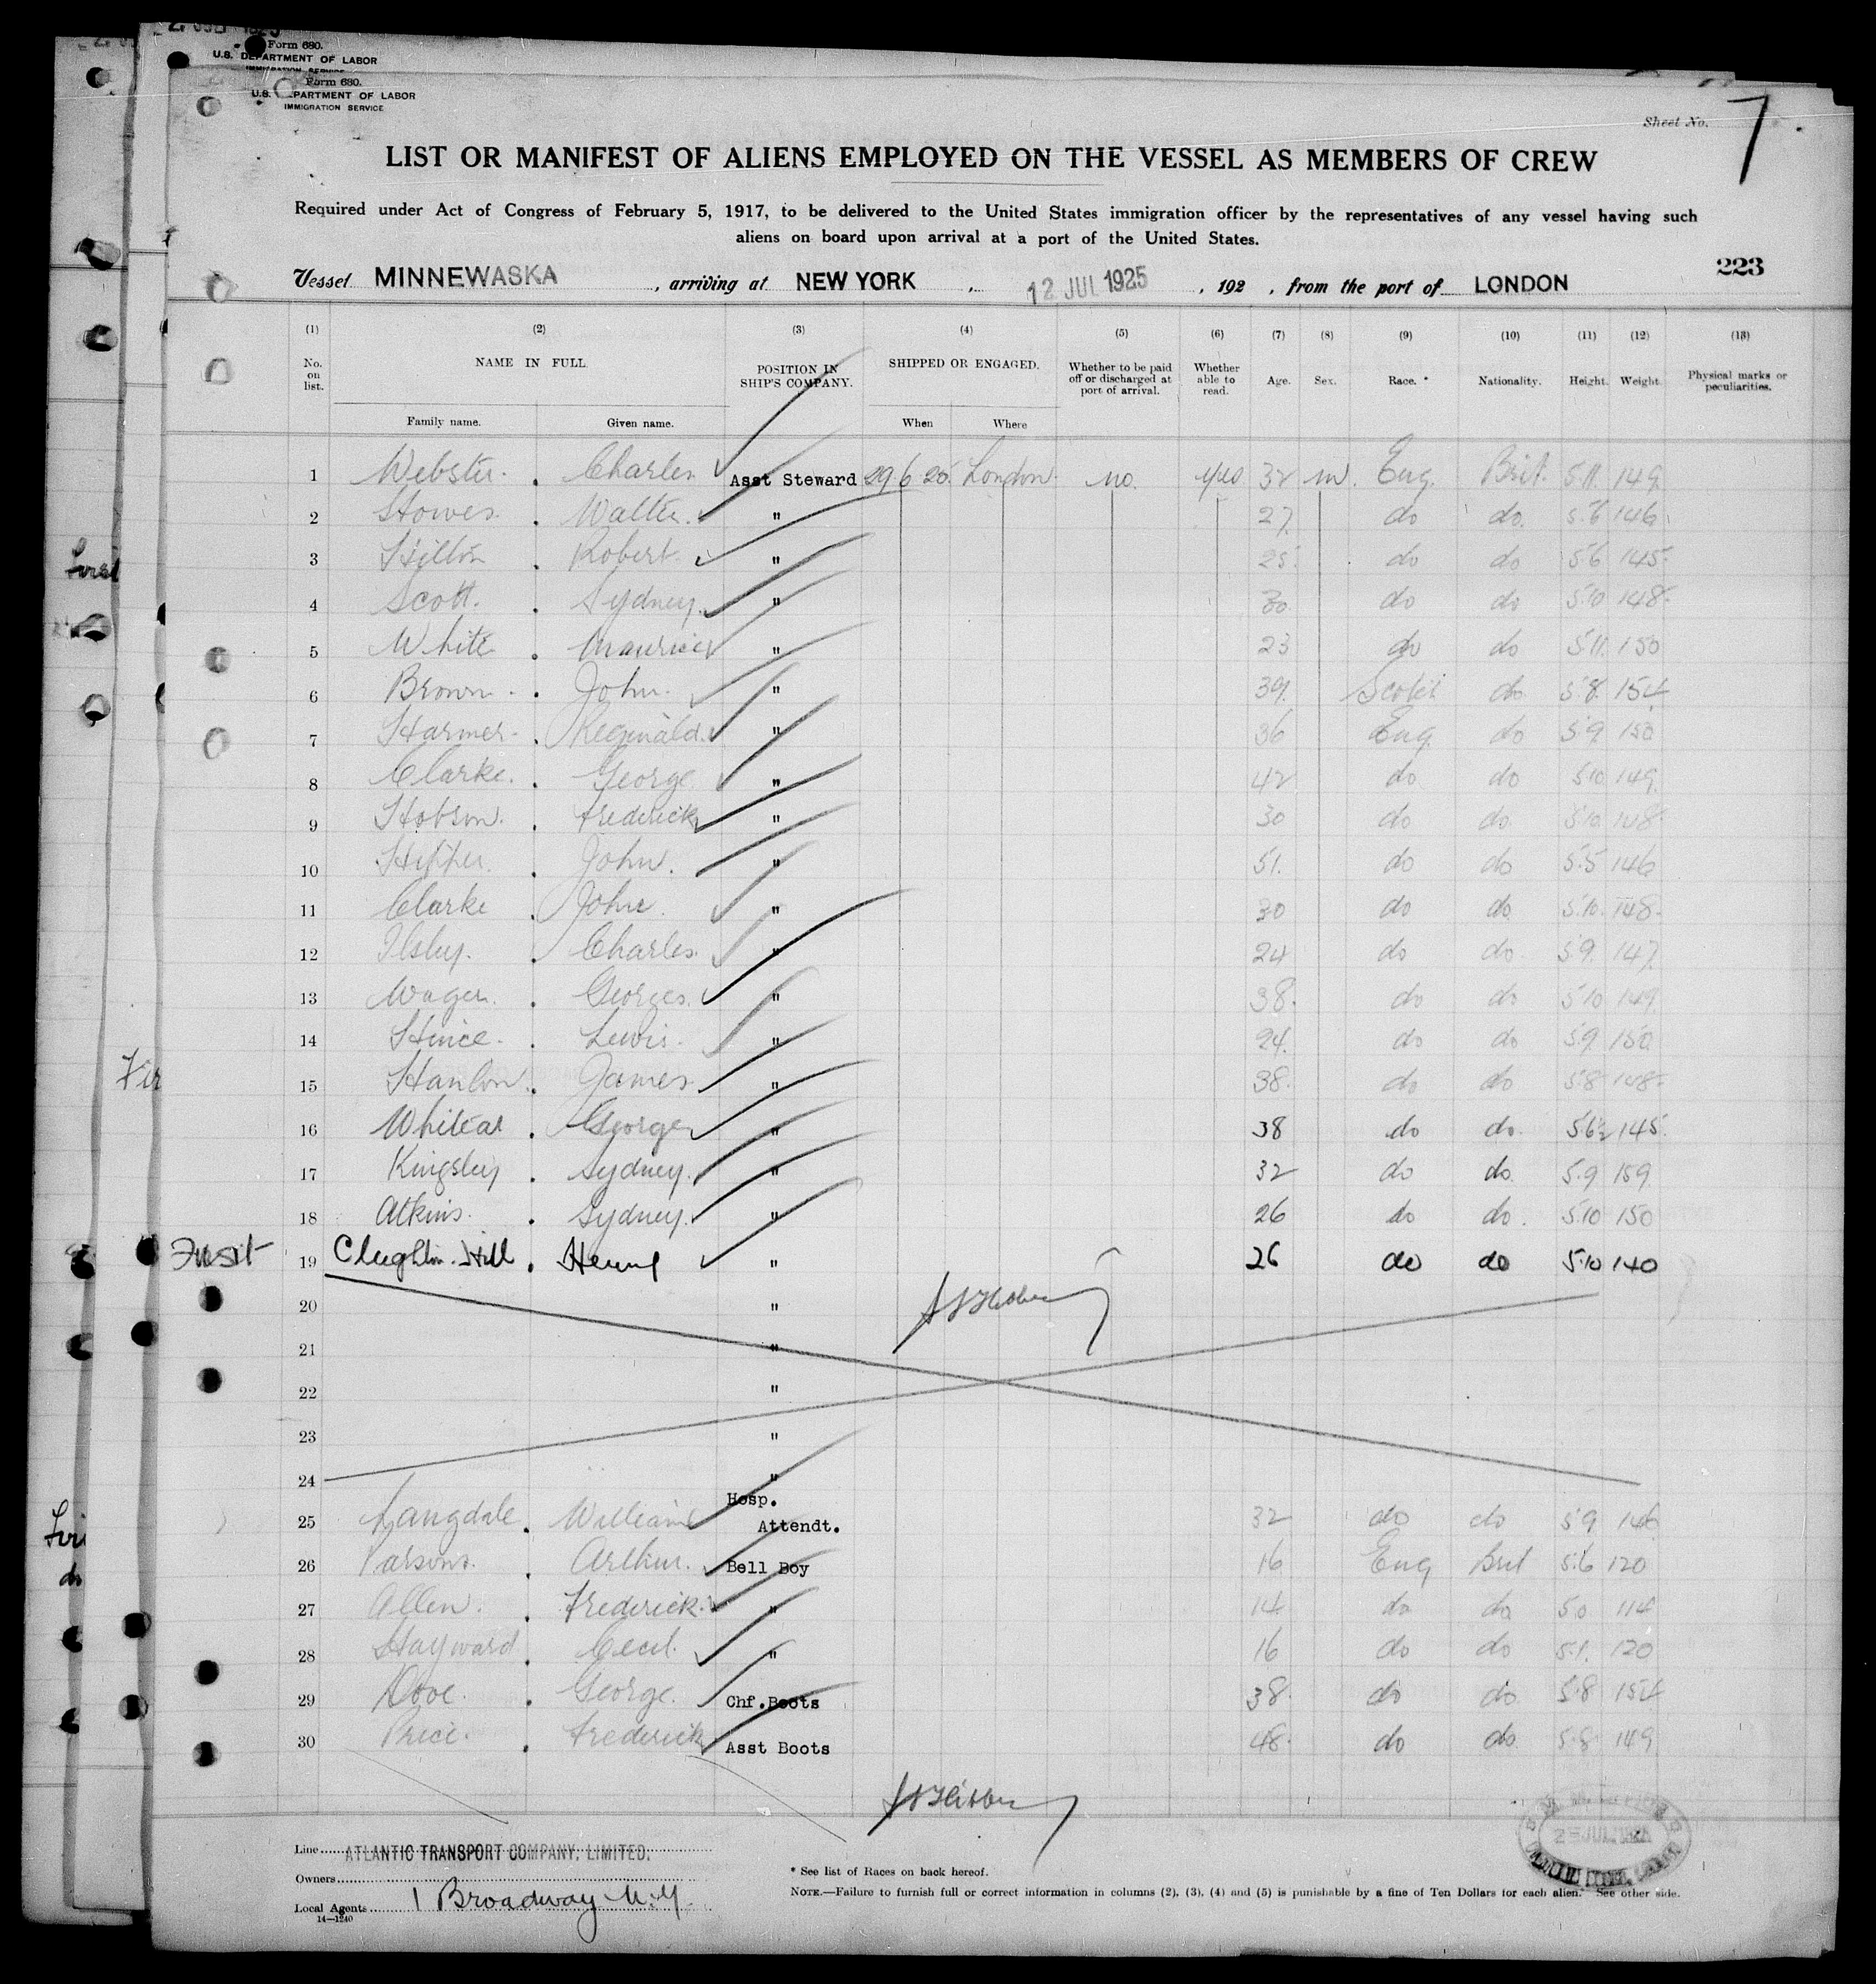 Form 680.
U.S. DEPARTMENT OF LABOR
Form 680.
U.S. DEPARTMENT OF LABOR
IMMIGRATION SERVICE
Sheet No. 7
LIST OR MANIFEST OF ALIENS EMPLOYED ON THE VESSEL AS MEMBERS OF CREW
Required under Act of Congress of February 5, 1917, to be delivered to the United States immigration officer by the representatives of any vessel having such
aliens on board upon arrival at a port of the United States.
223
Vessel MINNEWASKA, arriving at NEW YORK, 12 JUL 1925, 192 , from the port of LONDON
(1) (2) (3) (4) (5) (6) (7) (8) (9) (10) (11) (12) (13)
No. on list. NAME IN FULL POSITION IN SHIP'S COMPANY. SHIPPED OR ENGAGED. Whether to be paid off or discharged at port of arrival. Whether able to read. Age. Sex. Race.* Nationality. Height. Weight. Physical marks or peculiarities.
Family name. Given name. When Where
1 Webster. Charles. Asst Steward 29 6 25. London. no. yes 32 m. Eng. Brit. 5.11. 149.
2 Stowes. Walter. " 27. do do. 5.6 146
3 Hilton Robert. " 25. do do 5.6 145.
4 Scott. Sydney. " 30 do do 5.10 148.
5 White Maurice " 23 do do 5.11. 150
6 Brown. John. " 39. Scotch do 5.8. 154
7 Harmer. Reginald. " 36 Eng. do 5.9. 150
8 Clarke. George. " 42 do do 5.10 149.
9 Hobson. Frederick " 30 do do. 5.10 148
10 John. " 51. do do 5.5 146
11 Clarke John. " 30 do do 5.10. 148.
12 Ilsley. Charles. " 24 do do 5.9. 147.
13 Wager. Georges. " 38. do do 5.10 149.
14 Hince. Lewis. " 24. do do 5.9. 150
15 Hanlon. James. " 38. do do 5.8 148.
16 Whitear George " 38 do do. 5.6½ 145.
17 Kingsley Sydney. " 32 do do. 5.9 159.
18 Atkins. Sydney. " 26 do do. 5.10 150
19 Hill. " 26 do do 5.10 140
20 "
21 "
22 "
23 "
24 "
25 Langdale. William Hosp. Attendt. 32 do do 5.9 146
26 Parsons. Arthur. Bell Boy 16 Eng Brit 5.6 120
27 Allen. Frederick. " 14 do do 5.0 114
28 Hayward Cecil. " 16 do do 5.1. 120
29 Dove. George. Chf.Boots 38. do do. 5.8 154
30 Price. Frederick Asst Boots 48. do do. 5.8 149
Line ATLANTIC TRANSPORT COMPANY, LIMITED.
Owners
Local Agents 1 Broadway N.Y.
14—1240
* See list of Races on back hereof.
NOTE.—Failure to furnish full or correct information in columns (2), (3), (4) and (5) is punishable by a fine of Ten Dollars for each alien. See other side.